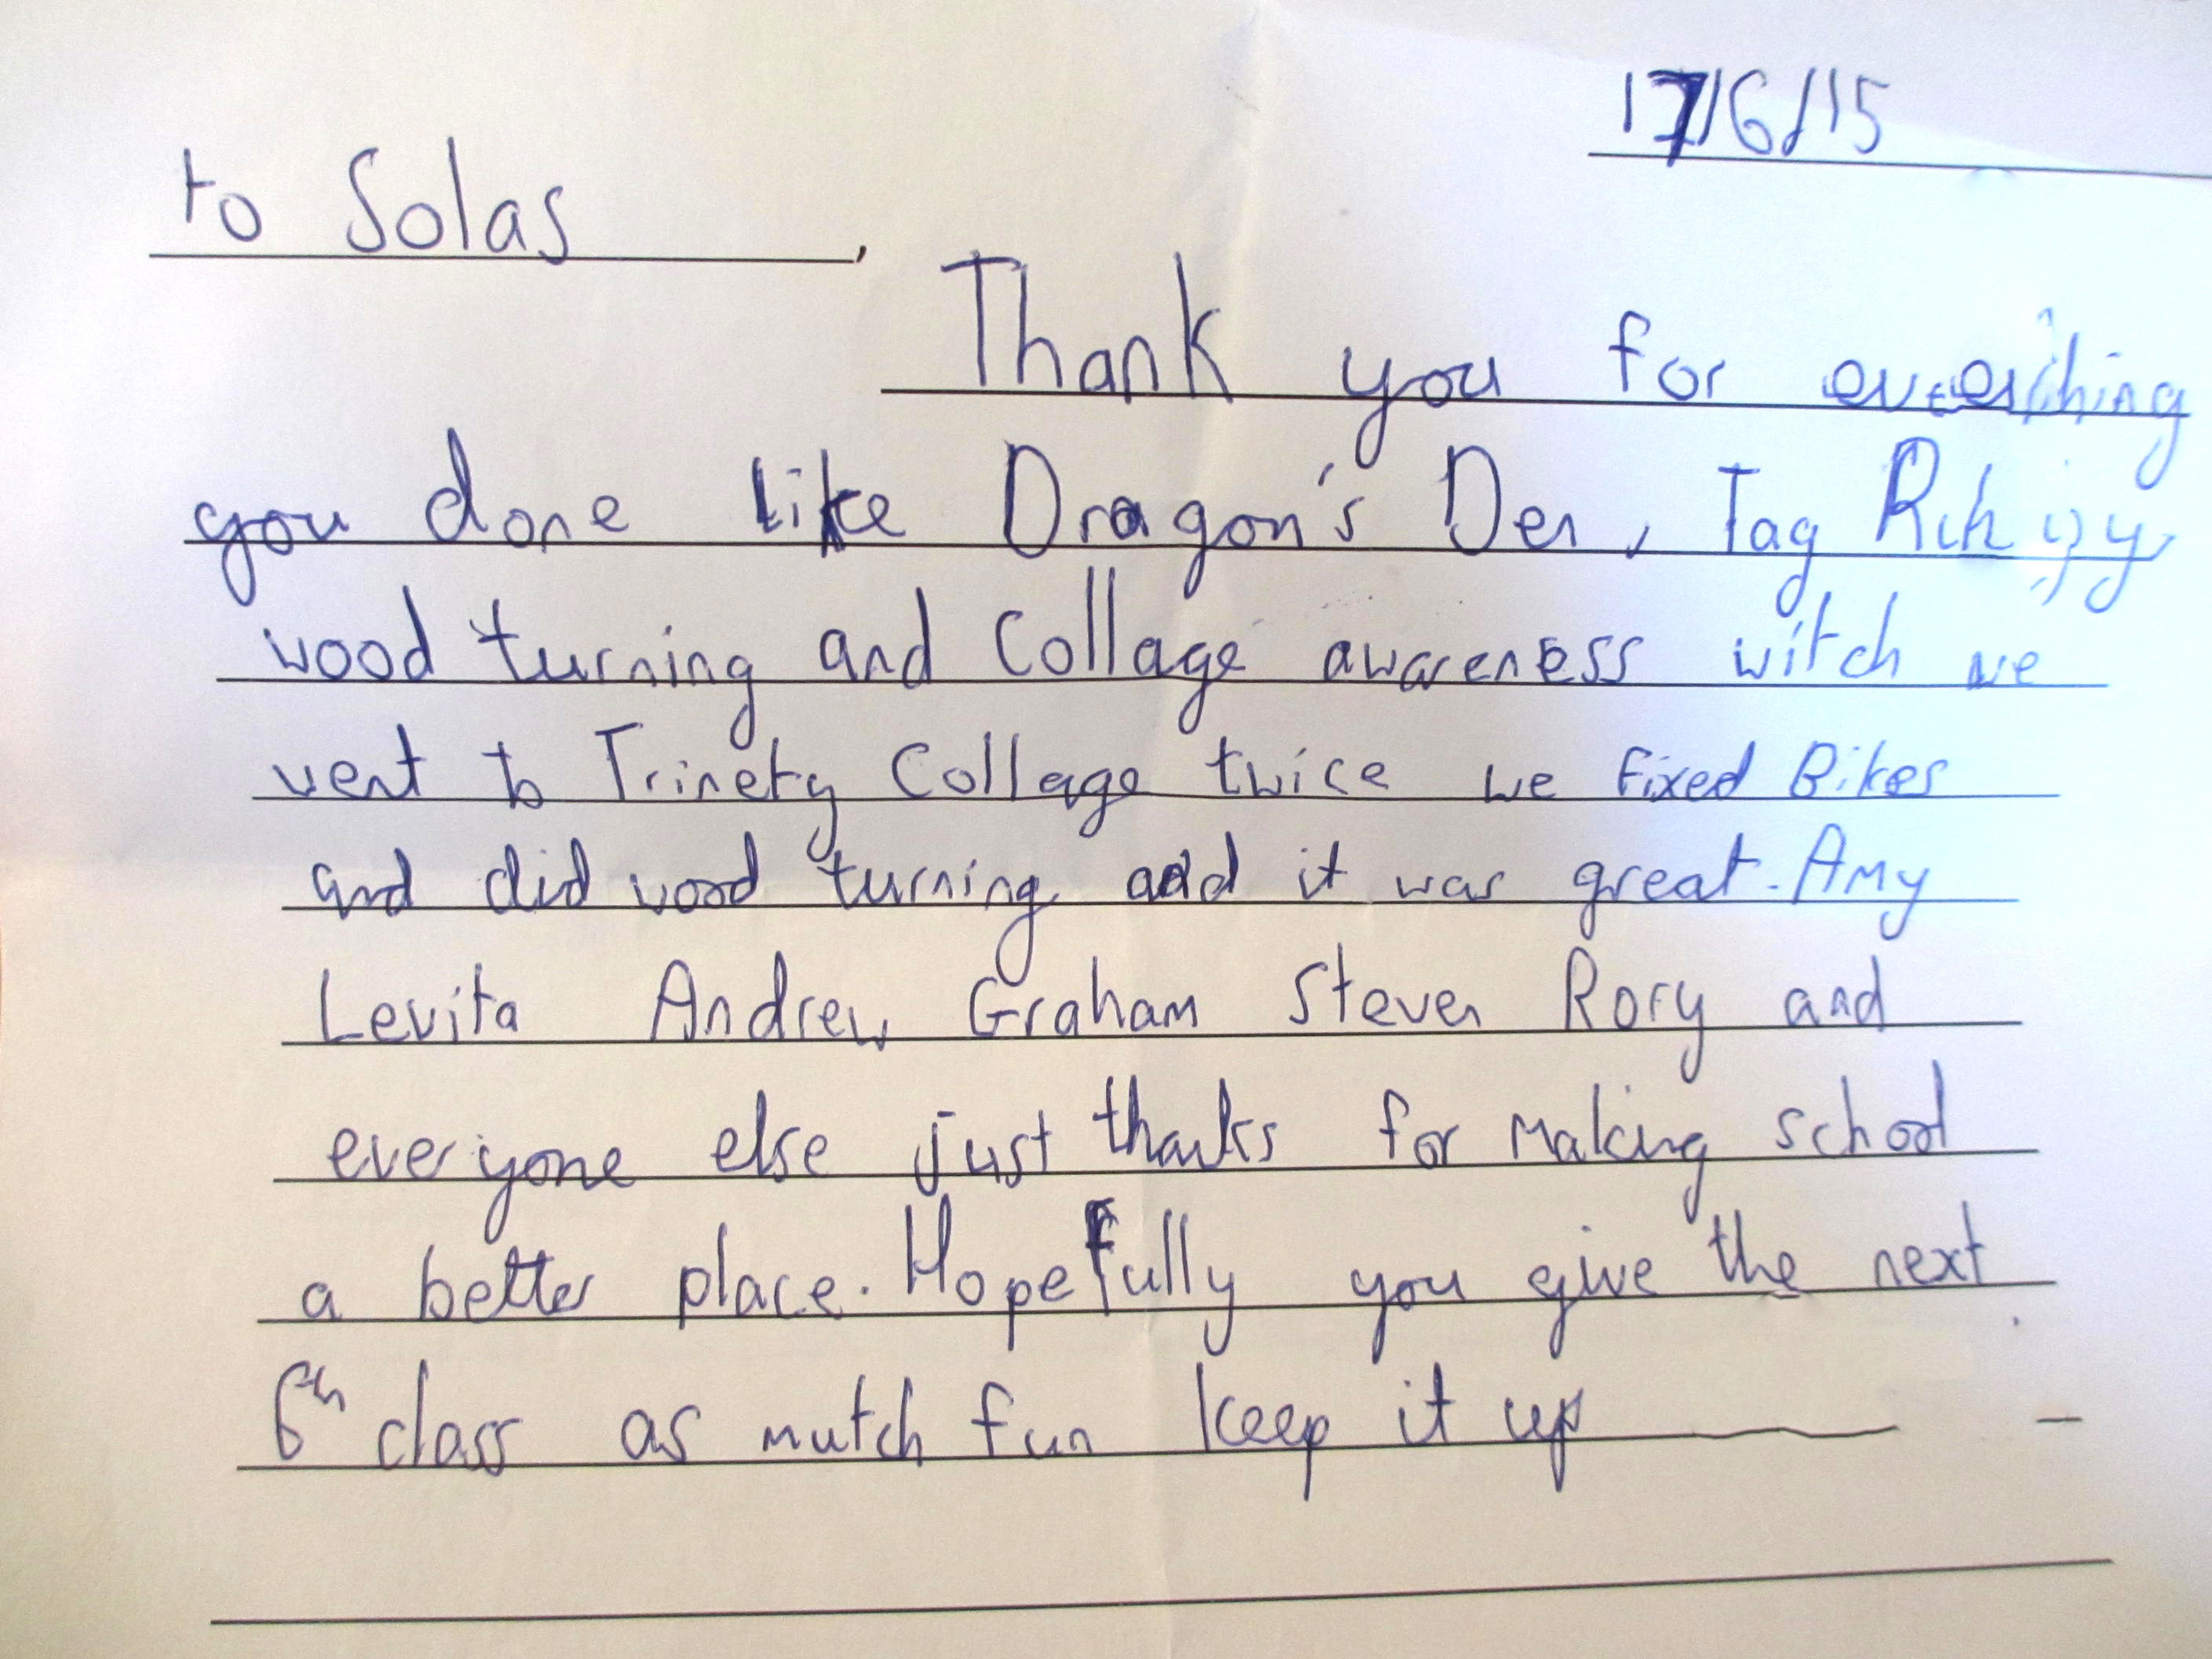 17/6/15
to Solas,
Thank you for everything
you done like Dragon's Den, Tag
wood turning and Collage awareness witch we
went to Trinety Collage twice we fixed Bikes
and did wood turning and it was great. Amy
Levita Andrew Graham Steven Rory and
everyone else just thanks for making school
a better place. Hopefully you give the next
6th class as mutch fun keep it up